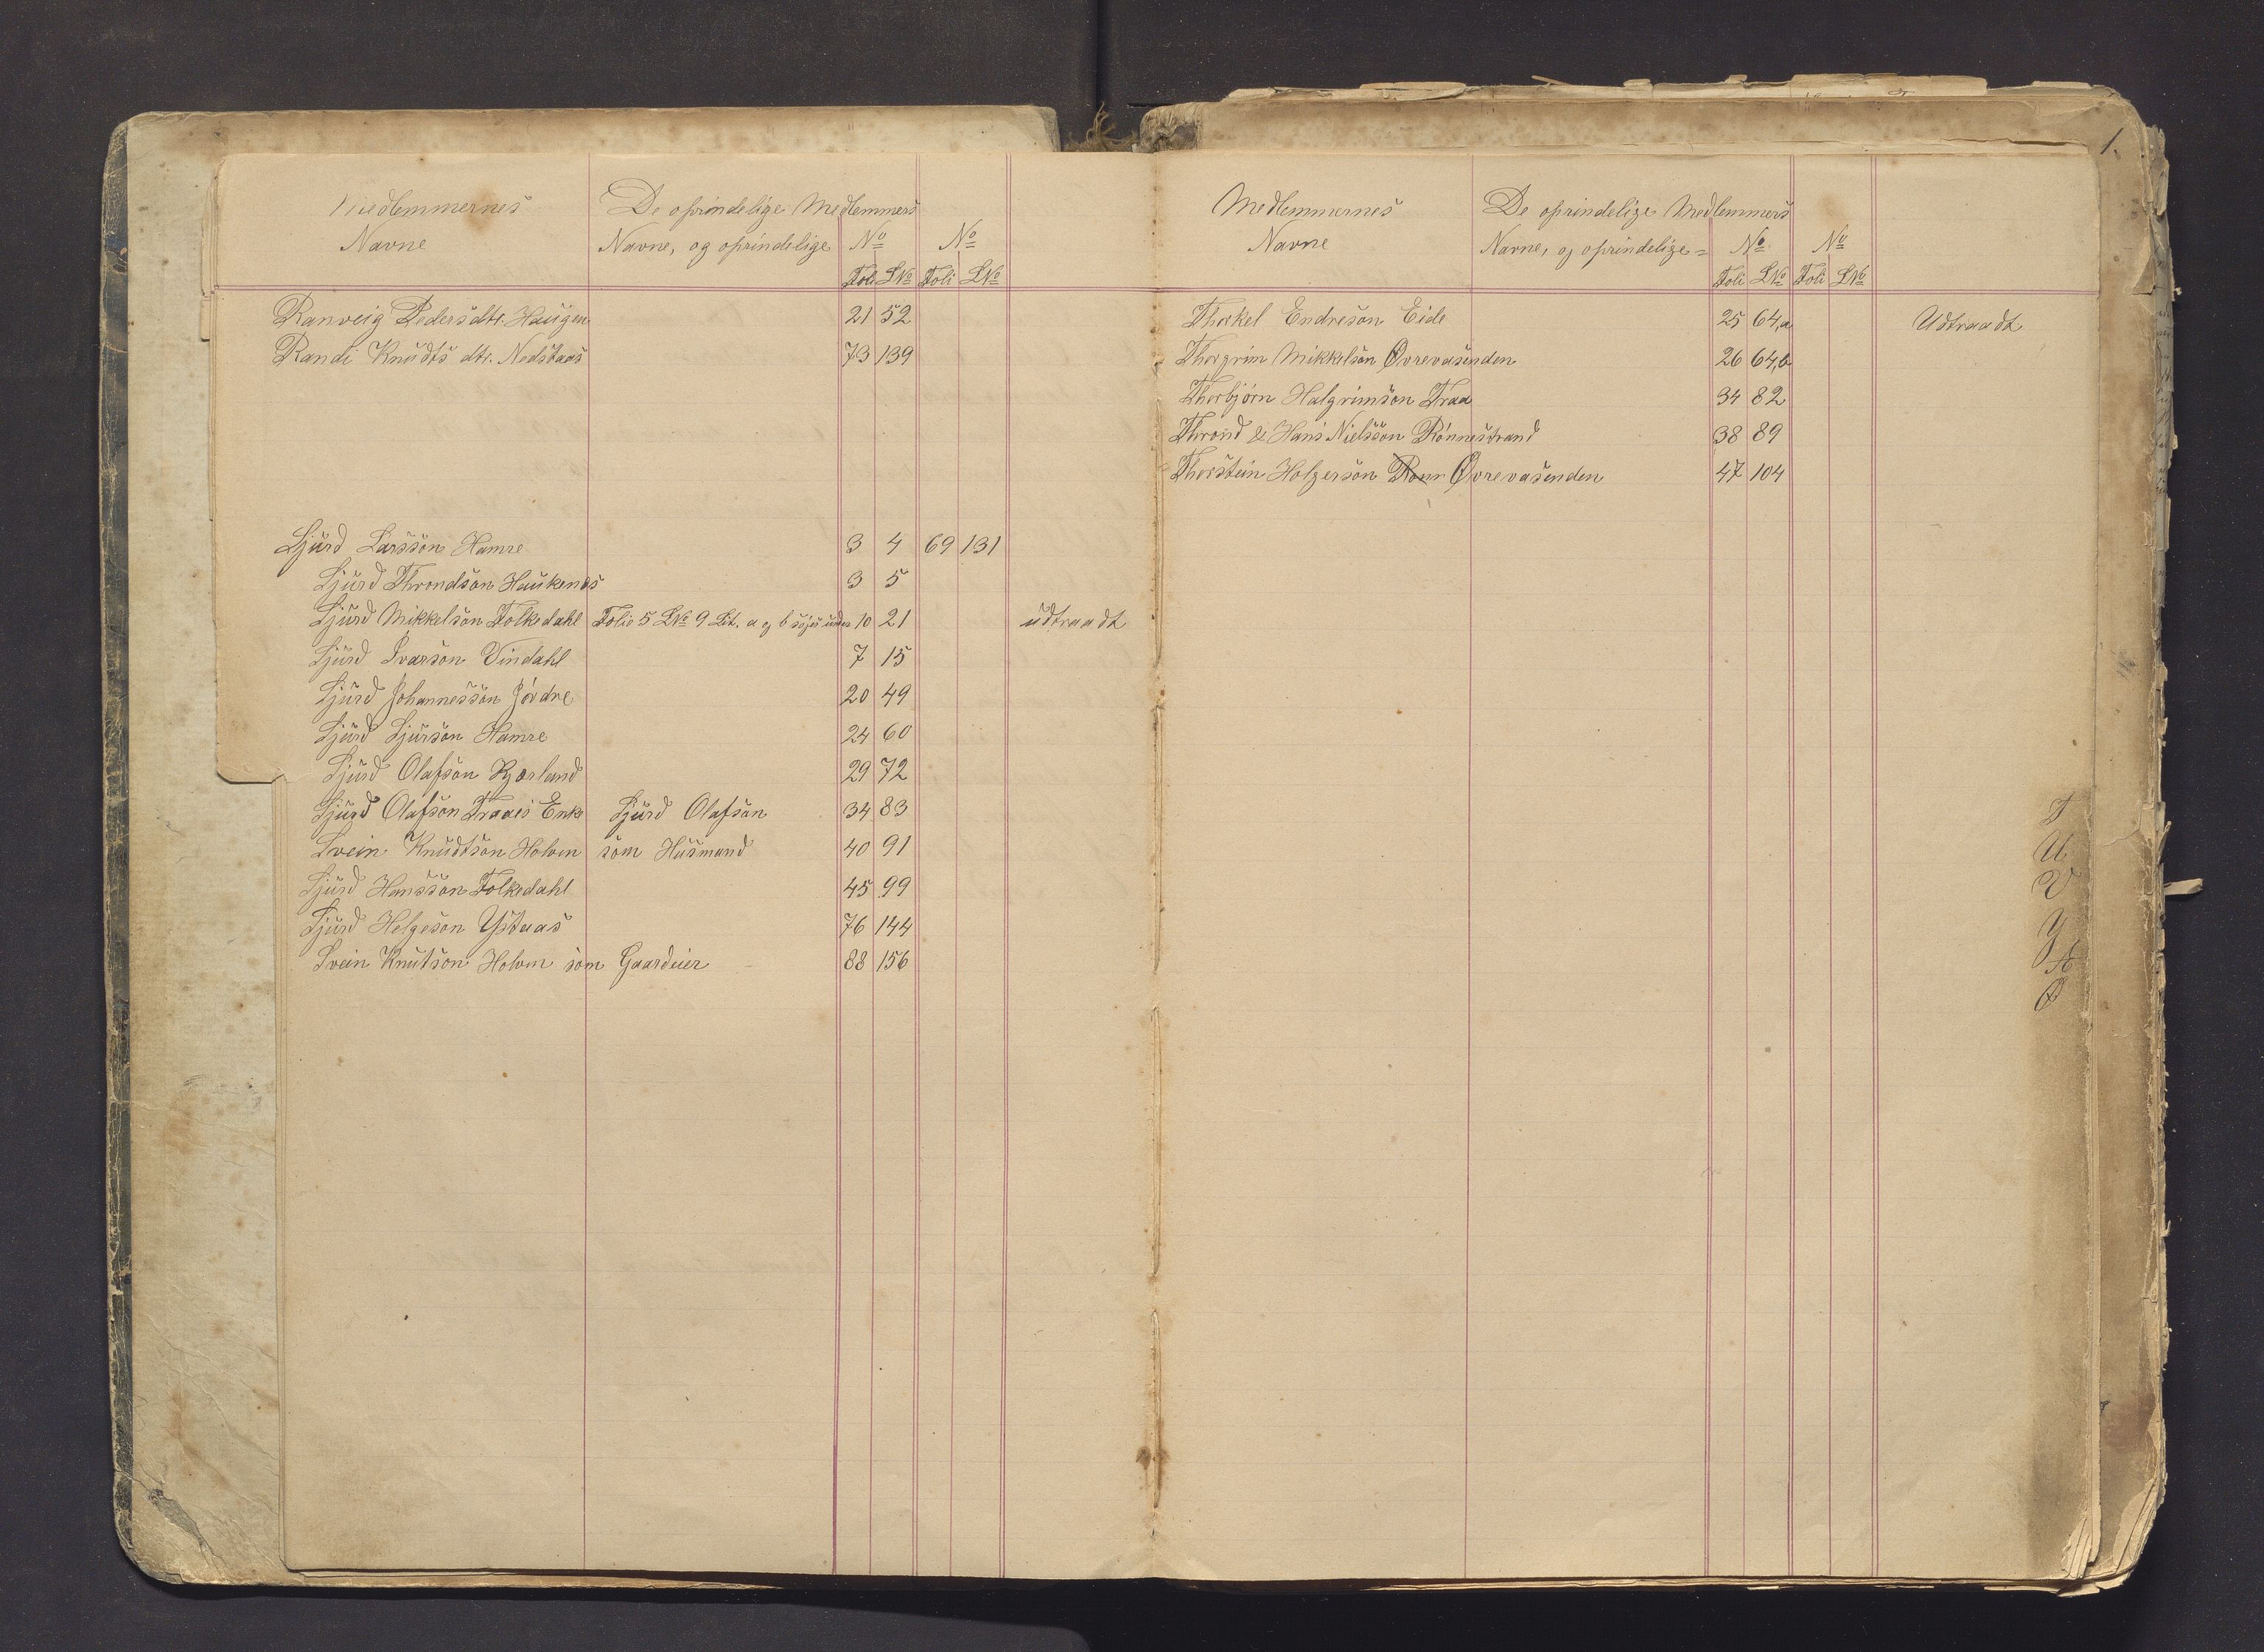 Medlemmernes De oprindelige Medlemmers
Navne Navne, og oprindelige No No
Foli LNo Foli LNo
Ranveig Pedersdtr. Haugen 21 52
Randi Knudts dtr. Nedstaas 73 139
Sjurd Larsson Hamre 3 4 69 131
Sjurd Throndson Haukenæs 3 5
Sjurd Mikkelson Folkedahl Folio 5 LNo 9 Lit. a og b 10 21 udtraadt
Sjurd Ivarson Vindahl 7 15
Sjurd Johannesson Jördre 20 49
Sjurd Sjurson Hamre 24 60
Sjurd Olafson Kjærland 29 72
Sjurd Olafson Traaes Enke Sjurd Olafson 34 83
Svein Knudtson Holven som Husmand 40 91
Sjurd Hansson Folkedahl 45 99
Sjurd Helgeson Ystaas 76 144
Svein Knutson Holven som Gaardeier 88 156
1.
Medlemmernes De oprindelige Medlemmers
Navne Navne, og oprindelige = No No
Foli LNo Foli LNo
Thorkel Endreson Eide 25 64,a Udtraadt
Thorgrim Mikkelson Øvrevasenden 26 64,b
Thorbjörn Halgrimson Traa 34 82
Thrond & Hans Nielsson Rönnestrand 38 89
Thorstein Holgerson Ronn Øvrevasenden 47 104
T
U
V
Y
Æ
Ø